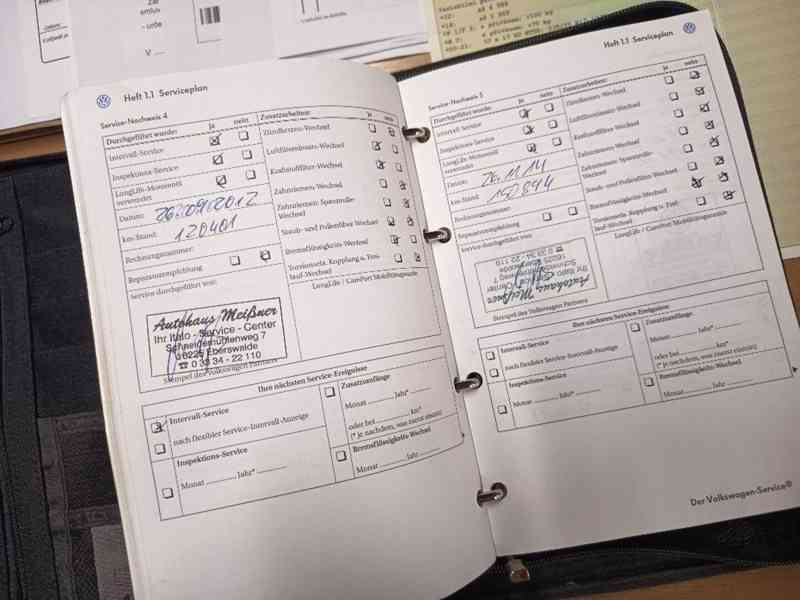 Heft 1.1 Serviceplan
Service-Nachweis 4
Durchgeführt wurde: ja nein
Intervall-Service
Inspektions-Service
LongLife-Motorenöl verwendet
Datum: 26.09.2012
km-Stand: 120401
Rechnungsnummer:
Reparaturempfehlung
Service durchgeführt von:
Autohaus Meißner
Ihr Italo - Service - Center
Schneidemühlenweg 7
16225 Eberswalde
☎ 0 33 34 - 22 110
Stempel des Volkswagen Partners
Zusatzarbeiten: ja nein
Zündkerzen-Wechsel
Luftfiltereinsatz-Wechsel
Kraftstofffilter-Wechsel
Zahnriemen-Wechsel
Zahnriemen-Spannrolle-
Wechsel
Staub- und Pollenfilter-Wechsel
Bremsflüssigkeits-Wechsel
LongLife / Carefort Mobilitätsgarantie
Ihre nächsten Service-Ereignisse
Intervall-Service
nach flexibler Service-Intervall-Anzeige
Inspektions-Service
Monat Jahr*
Zusatzumfänge
Monat Jahr*
oder bei km*
(* je nachdem, was zuerst eintritt)
Bremsflüssigkeits-Wechsel
Monat Jahr
Heft 1.1 Serviceplan
Service-Nachweis 5
Durchgeführt wurde: ja nein
Intervall-Service
Inspektions-Service
LongLife-Motorenöl
verwendet
Datum: 26.11.14
km-Stand:
Rechnungsnummer:
Reparaturempfehlung
Service durchgeführt von:
Autohaus Meißner
Ihr Italo - Service - Center
Schneidemühlenweg 7
16225 Eberswalde
☎ 0 33 34 - 22 110
Stempel des Volkswagen Partners
Zusatzarbeiten: ja nein
Zündkerzen-Wechsel
Luftfiltereinsatz-Wechsel
Kraftstofffilter-Wechsel
Zahnriemen-Wechsel
Zahnriemen-Spannrolle-
Wechsel
Staub- und Pollenfilter-Wechsel
Bremsflüssigkeits-Wechsel
LongLife / Carefort Mobilitätsgarantie
Ihre nächsten Service-Ereignisse
Intervall-Service
nach flexibler Service-Intervall-Anzeige
Inspektions-Service
Monat Jahr*
Zusatzumfänge
Monat Jahr*
oder bei km*
(* je nachdem, was zuerst eintritt)
Bremsflüssigkeits-Wechsel
Monat Jahr
Der Volkswagen-Service®